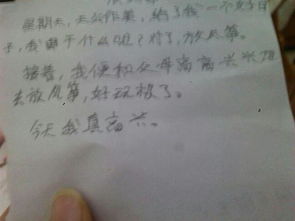 星期天,去公作业,给了我一个好日
子,我干什么呢?对了,放风筝。
接着,我便和父母高高兴兴地
去放风筝,好玩极了。
今天我真高兴。